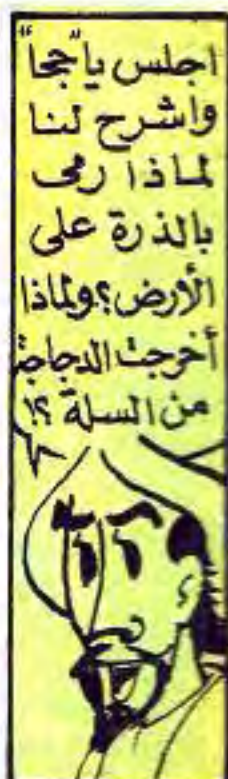 اجلس يا "جحا"
واشرح لنا
لماذا رمى
بالذرة على
الأرض؟ ولماذا
أخرجت الدجاجة
من السلة ؟!